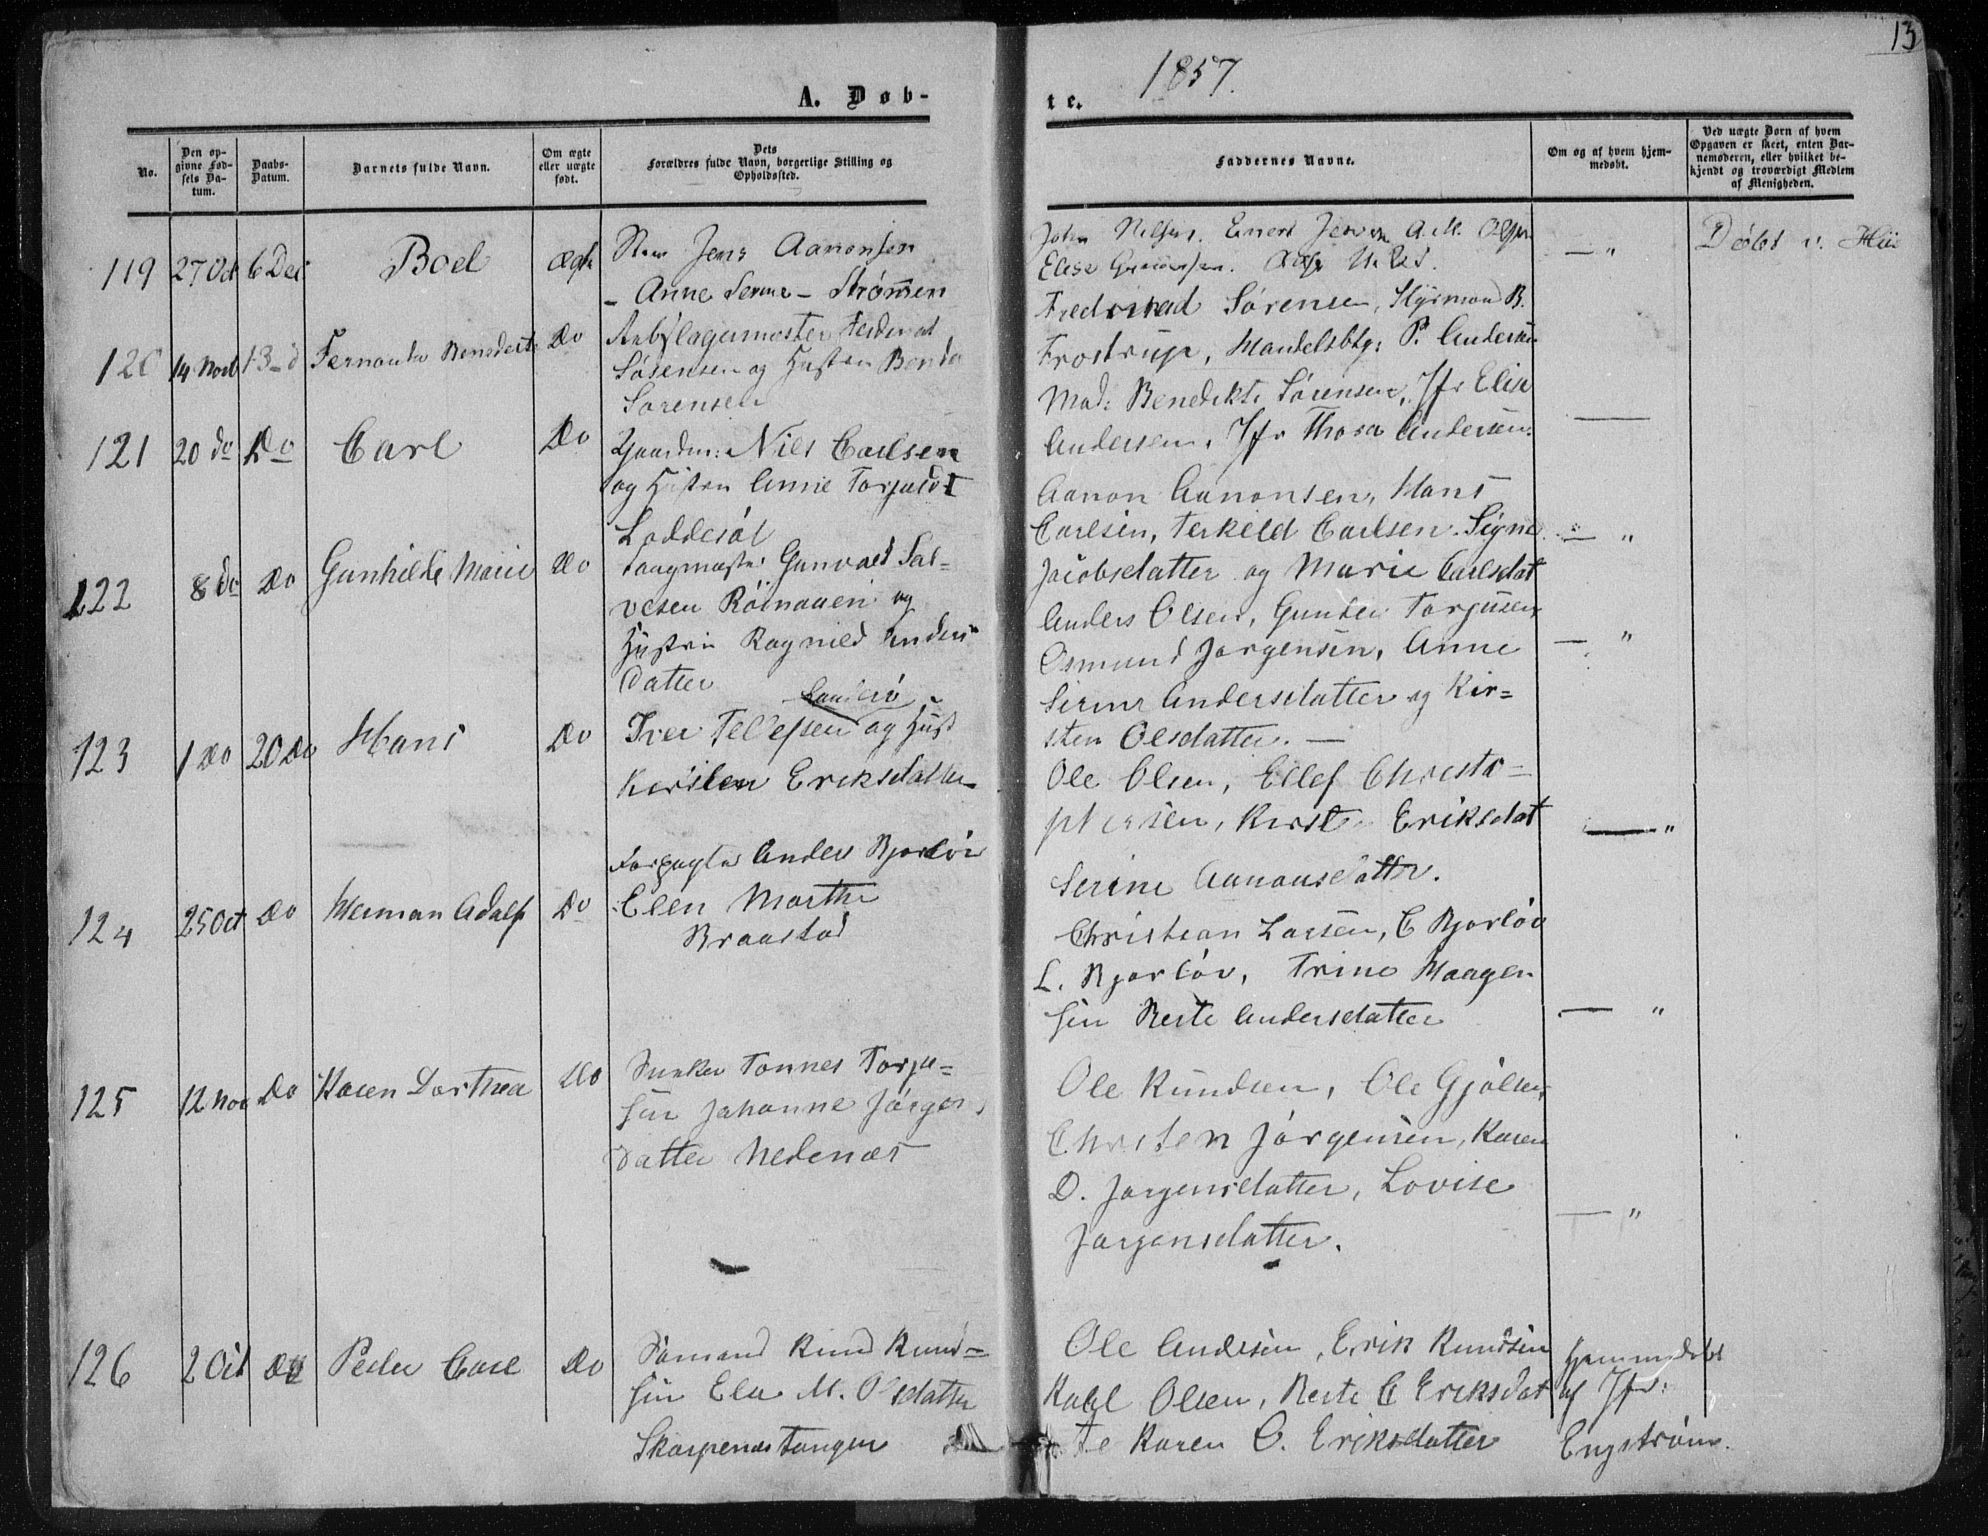 13
1857.
A. Døb-
te.
No.
Den op-
givne Fød-
sels Da-
tum.
Daabs-
Datum.
Barnets fulde Navn.
Om ægte
eller uægte
født.
Dets
Forældres fulde Navn, borgerlige Stilling og
Opholdssted.
Faddernes Navne.
Om og af hvem hjem-
medøbt.
Ved uægte Børn af hvem
Opgaven er skeet, enten Bar-
nemoderen, eller hvilket be-
kjendt og troværdigt Medlem
af Menigheden.
119 27 Oct 6 Dec Boel ægte Jens Aanonsen
- Anne Serine - Strømmen
John Nilsen. Jensen A. M. Olsen
Elise
— " Døbt i
120 14 Novb 13 d Fernanda Benedicte Do Ferdinand
Sørensen og Hustru
Sørensen
Fredinad Sørensen, Styrmand B.
Frostrup, Handelsbtg: P. Andersen
Mad: Benedikte Sørensen, Jfr Elise
Andersen, Jfr Thora Andersen.
121 20 do Do Carl Do Gaardm: Nils Carlsen
og Hustru Anne Torjusdt
Loddesøl
Aanon Aanonsen, Hans
Carlsen, Terkeld Carlsen. Signe
Jacobsdatter og Marie Carlsdat
— "
122 8 do Do Gunhilde Marie Do Gunvald Sal=
vesen og
Hustru Ragnild Anders
datter
Anders Olsen, Gunder Torjusen
Osmund Jørgensen, Anne
Serine Andersdatter og Kir=
sten Olsdatter. —
— "
123 1 Do 20 Do Hans Do Iver Tellefsen og Hust
Kirsten Eriksdatter
Ole Olsen, Ellef Christo=
phersen, Kirste Eriksdat
Serine Aanonsdatter.
— "
124 25 Oct Do Herman Adolf Do Forpagter Anders Bjorløv
Elen Marthe
Braastad
Christian Larsen, C Bjorløv
L. Bjorløv, Trine Haagen
sen Berte Andersdatter
— "
125 12 Nov Do Karen Dorthea Do Tønnes Torju=
sen Johanne Jørgens
datter Nedenæs
Ole Knudsen, Ole Gjølsen,
Christen Jørgensen, Karen
D. Jørgensdatter, Lovise
Jørgensdatter.
— "
126 2 Oct Do Peder Carl Do Sømand Knud Knud=
sen Ele M. Olsdatter
Skarpenæs Tangen
Ole Andersen, Erik Knudsen
Olsen, Berte C Eriksdat
te Karen O. Eriksdatter
Hjemmedøbt
af Jfr:
Engstrøm.